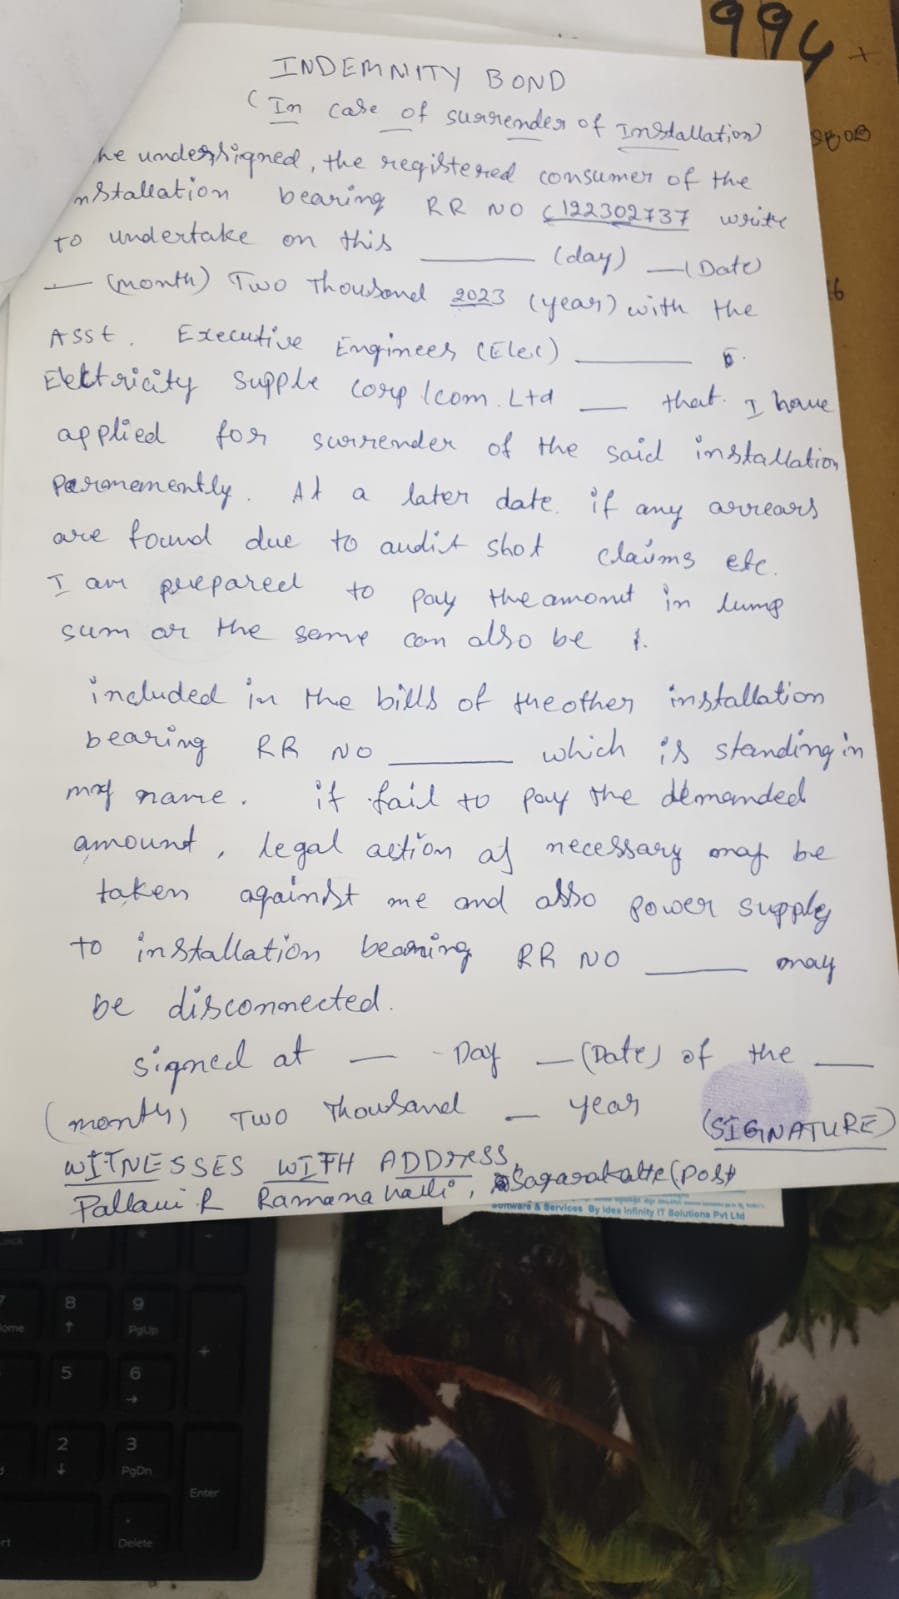 994
INDEMNITY BOND
(In case of surrender of Installation)
he undersigned, the registered consumer of the
nstallation bearing RR NO C122302737 write
To undertake on this ______ (day) __ (Date)
__ (month) Two Thousand 2023 (year) with the
Asst. Executive Engineer (Elec) ______
Elektricity Supple corp/com. Ltd __ that. I have
applied for surrender of the said installation
Permemently. At a later date. if any arrears
are found due to audit shot claims etc.
I am prepared to pay the amonut in lump
sum or the same can also be
included in the bills of the other installation
bearing RR NO ______ which is standing in
my name. if fail to pay the demanded
amount, legal action as necessary may be
taken against me and also power supply
to installation bearing RR NO ______ may
be disconnected.
signed at __ Day __ (Date) of the __
(month) TWO Thousand __ year
(SIGNATURE)
WITNESSES WITH ADDress
Pallavi R Ramanahalli, Sagarakatte (post
Software & Services By Idea Infinity IT Solutions Pvt Ltd
7
8
9
Home
PgUp
+
5
6
2
3
PgDn
Enter
Delete